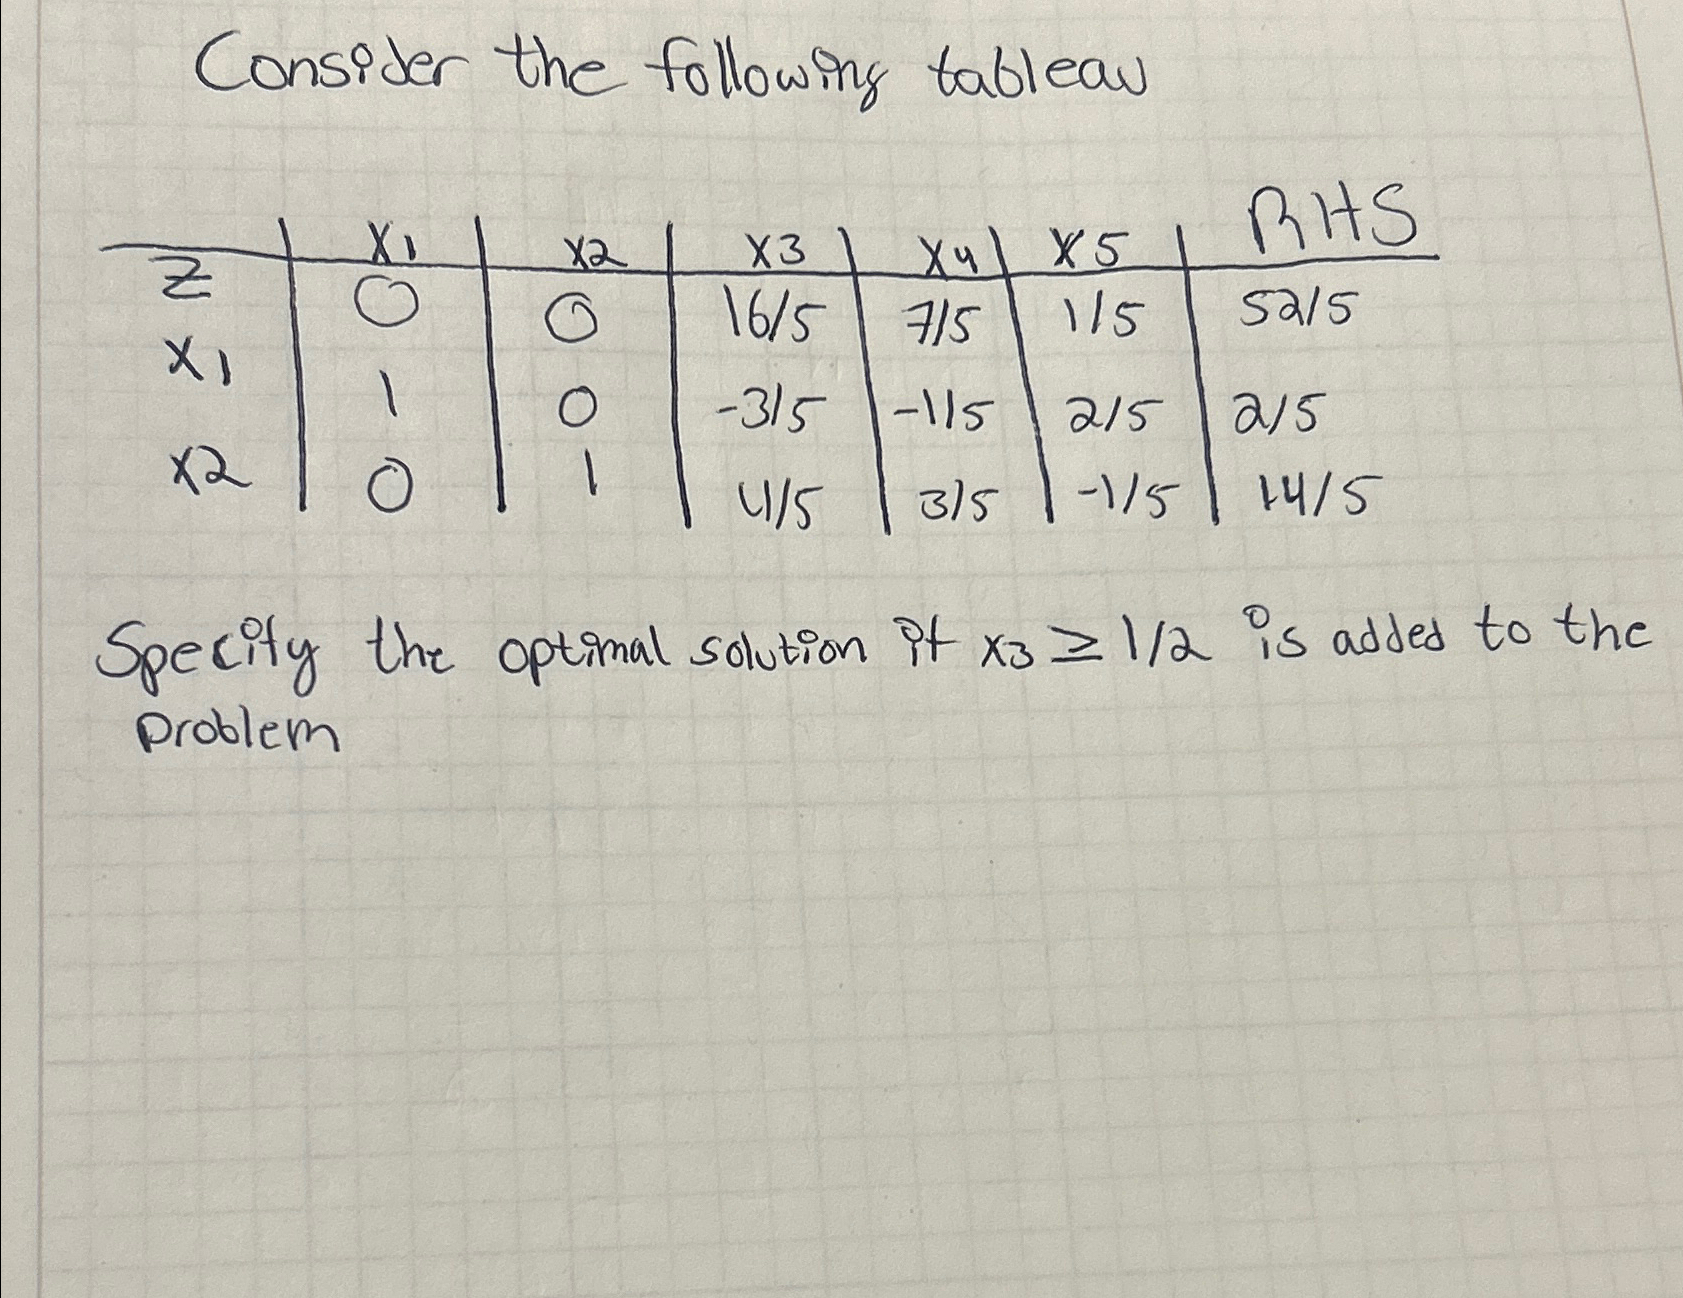 Consider the following tableau
x1 x2 x3 x4 x5 RHS
z 0 0 16/5 7/5 1/5 52/5
x1 1 0 -3/5 -1/5 2/5 2/5
x2 0 1 4/5 3/5 -1/5 14/5
Specify the optimal solution if x3 ≥ 1/2 is added to the
problem